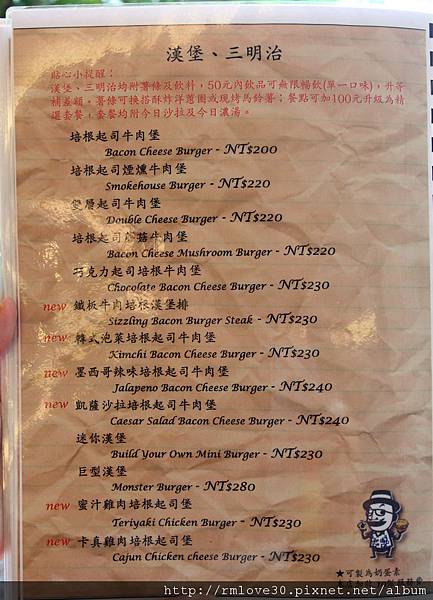 漢堡、三明治
貼心小提醒：
漢堡、三明治均附薯條及飲料，50元內飲品可無限暢飲(單一口味)，升等
補差額。薯條可換搭酥炸洋蔥圈或現烤馬鈴薯；餐點可加100元升級為精
選套餐，套餐均附今日沙拉及今日濃湯。
培根起司牛肉堡
Bacon Cheese Burger - NT$200
培根起司煙燻牛肉堡
Smokehouse Burger - NT$220
雙層起司牛肉堡
Double Cheese Burger - NT$220
培根起司蘑菇牛肉堡
Bacon Cheese Mushroom Burger - NT$220
巧克力起司培根牛肉堡
Chocolate Bacon Cheese Burger - NT$230
new 鐵板牛肉培根漢堡排
Sizzling Bacon Burger Steak - NT$230
new 韓式泡菜培根起司牛肉堡
Kimchi Bacon Cheese Burger - NT$230
new 墨西哥辣味培根起司牛肉堡
Jalapeno Bacon Cheese Burger - NT$240
new 凱薩沙拉培根起司牛肉堡
Caesar Salad Bacon Cheese Burger - NT$240
迷你漢堡
Build Your Own Mini Burger - NT$230
巨型漢堡
Monster Burger - NT$280
new 蜜汁雞肉培根起司堡
Teriyaki Chicken Burger - NT$230
new 卡真雞肉培根起司堡
Cajun Chicken cheese Burger - NT$230
★可製為奶蛋素
http://rmlove30.pixnet.net/album